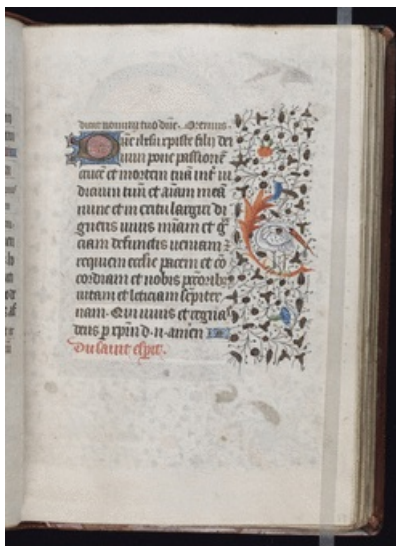 dicant nomini tuo dñe. Oremus.
Dñe ihesu xpiste filij dei
viui pone passionē
crucē et mortem tuā int̄ iu
dicium tuū et aīam meā
nunc et in
gneris viuis mīam et g̃
ciam defunctis veniam z
requiem ecclīe pacem et cō
cordiam et nobis pctōribȝ
vitam et leticiam sēpiter
nam. Qui viuis et regna
deus p
Du saint esprit.